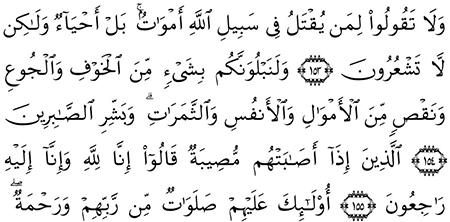 وَلَا تَقُولُوا۟ لِمَن يُقْتَلُ فِى سَبِيلِ ٱللَّهِ أَمْوَٰتٌۢ ۚ بَلْ أَحْيَآءٌ وَلَٰكِن
لَّا تَشْعُرُونَ ١٥٣ وَلَنَبْلُوَنَّكُم بِشَىْءٍ مِّنَ ٱلْخَوْفِ وَٱلْجُوعِ
وَنَقْصٍ مِّنَ ٱلْأَمْوَٰلِ وَٱلْأَنفُسِ وَٱلثَّمَرَٰتِ ۗ وَبَشِّرِ ٱلصَّٰبِرِينَ
١٥٤ ٱلَّذِينَ إِذَآ أَصَٰبَتْهُم مُّصِيبَةٌ قَالُوٓا۟ إِنَّا لِلَّهِ وَإِنَّآ إِلَيْهِ
رَٰجِعُونَ ١٥٥ أُو۟لَٰٓئِكَ عَلَيْهِمْ صَلَوَٰتٌ مِّن رَّبِّهِمْ وَرَحْمَةٌ ۖ